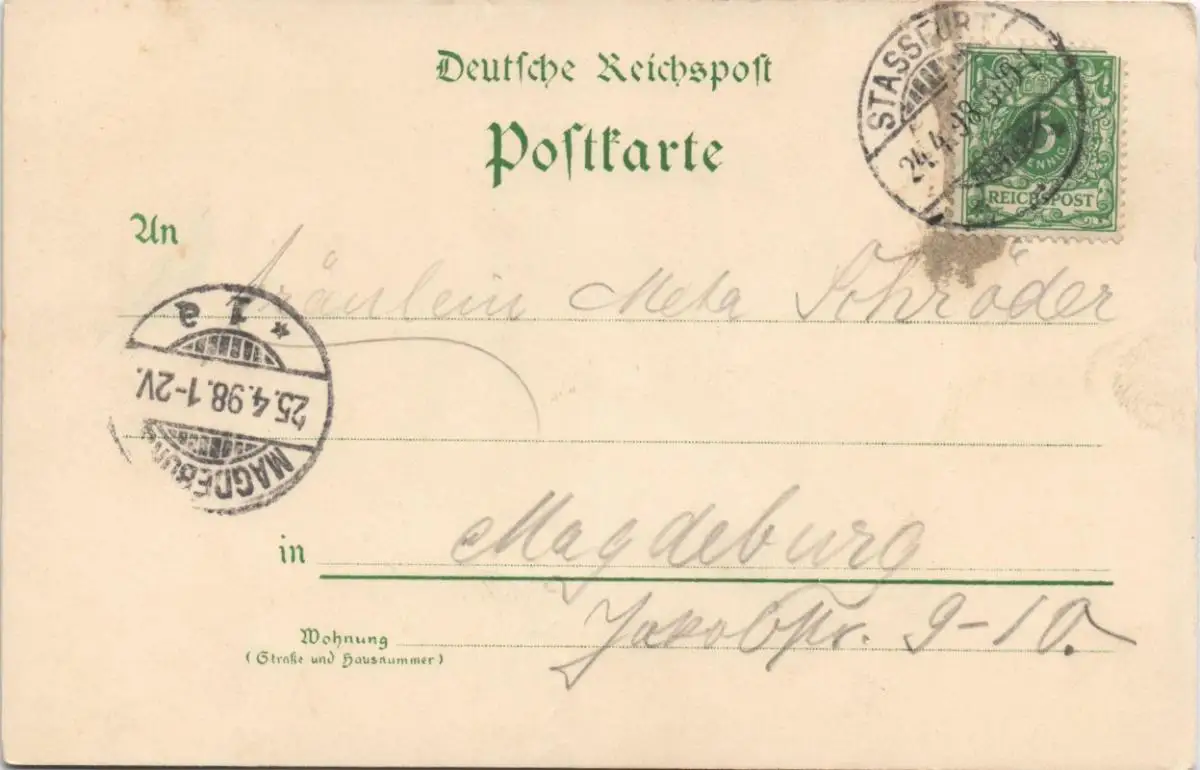 Deutsche Reichspost
Postkarte
STASSFURT
24.4.98
5
PFENNIG
REICHSPOST
An Fräulein Meta Schröder
* 1 a
25.4.98.1-2V.
MAGDEBURG
in Magdeburg
Wohnung Jakobstr. 9-10.
(Straße und Hausnummer)